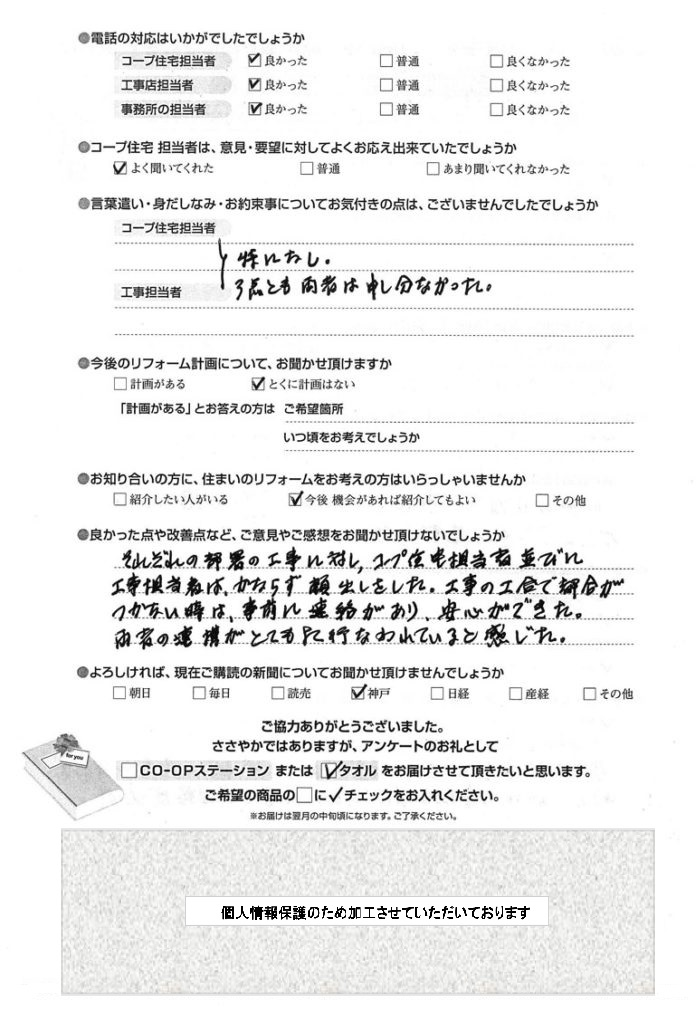 ●電話の対応はいかがでしたでしょうか
コープ住宅担当者 ☑良かった □普通 □良くなかった
工事店担当者 ☑良かった □普通 □良くなかった
事務所の担当者 ☑良かった □普通 □良くなかった
●コープ住宅 担当者は、意見・要望に対してよくお応え出来ていたでしょうか
☑よく聞いてくれた □普通 □あまり聞いてくれなかった
●言葉遣い・身だしなみ・お約束事についてお気付きの点は、ございませんでしたでしょうか
コープ住宅担当者
特になし。
工事担当者 3点とも両者は申し分なかった。
●今後のリフォーム計画について、お聞かせ頂けますか
□計画がある ☑とくに計画はない
「計画がある」とお答えの方は ご希望箇所
いつ頃をお考えでしょうか
●お知り合いの方に、住まいのリフォームをお考えの方はいらっしゃいませんか
□紹介したい人がいる ☑今後 機会があれば紹介してもよい □その他
●良かった点や改善点など、ご意見やご感想をお聞かせ頂けないでしょうか
それぞれの部署の工事に対し、コープ住宅担当者並びに
工事担当者は、かならず顔出しをした。工事の工合で都合が
つかない時は、事前に連絡があり、安心ができた。
両者の連携がとても行なわれていると感じた。
●よろしければ、現在ご購読の新聞についてお聞かせ頂けませんでしょうか
□朝日 □毎日 □読売 ☑神戸 □日経 □産経 □その他
ご協力ありがとうございました。
ささやかではありますが、アンケートのお礼として
for you
□CO-OPステーション または ☑タオル をお届けさせて頂きたいと思います。
ご希望の商品の□に✓チェックをお入れください。
※お届けは翌月の中旬頃になります。ご了承ください。
個人情報保護のため加工させていただいております